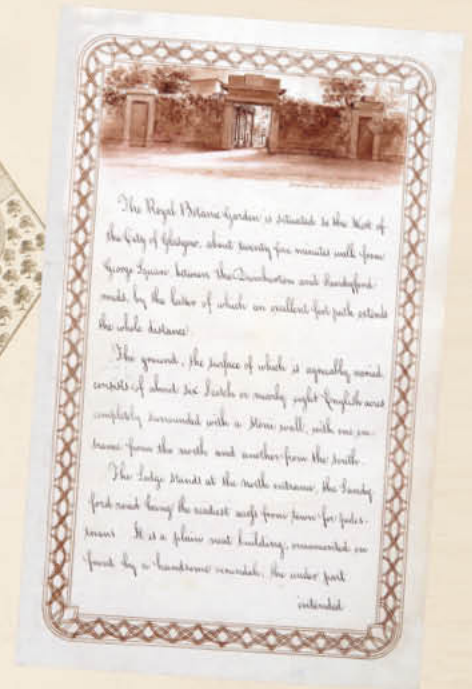 The Royal Botanic Garden is situated to the West of
the City of Glasgow, about twenty five minutes walk from
George Square between the Dumbarton and Sandyford
roads, by the latter of which an excellent foot path extends
the whole distance.
The ground, the surface of which is agreeably varied
consists of about six Scotch or nearly eight English acres
completely surrounded with a Stone wall, with one en-
trance from the north and another from the south.
The Lodge stands at the north entrance, the Sandy-
ford road being the readiest from town for pedes-
trians. It is a plain neat building, ornamented in
front by a handsome verandah, the under part
intended